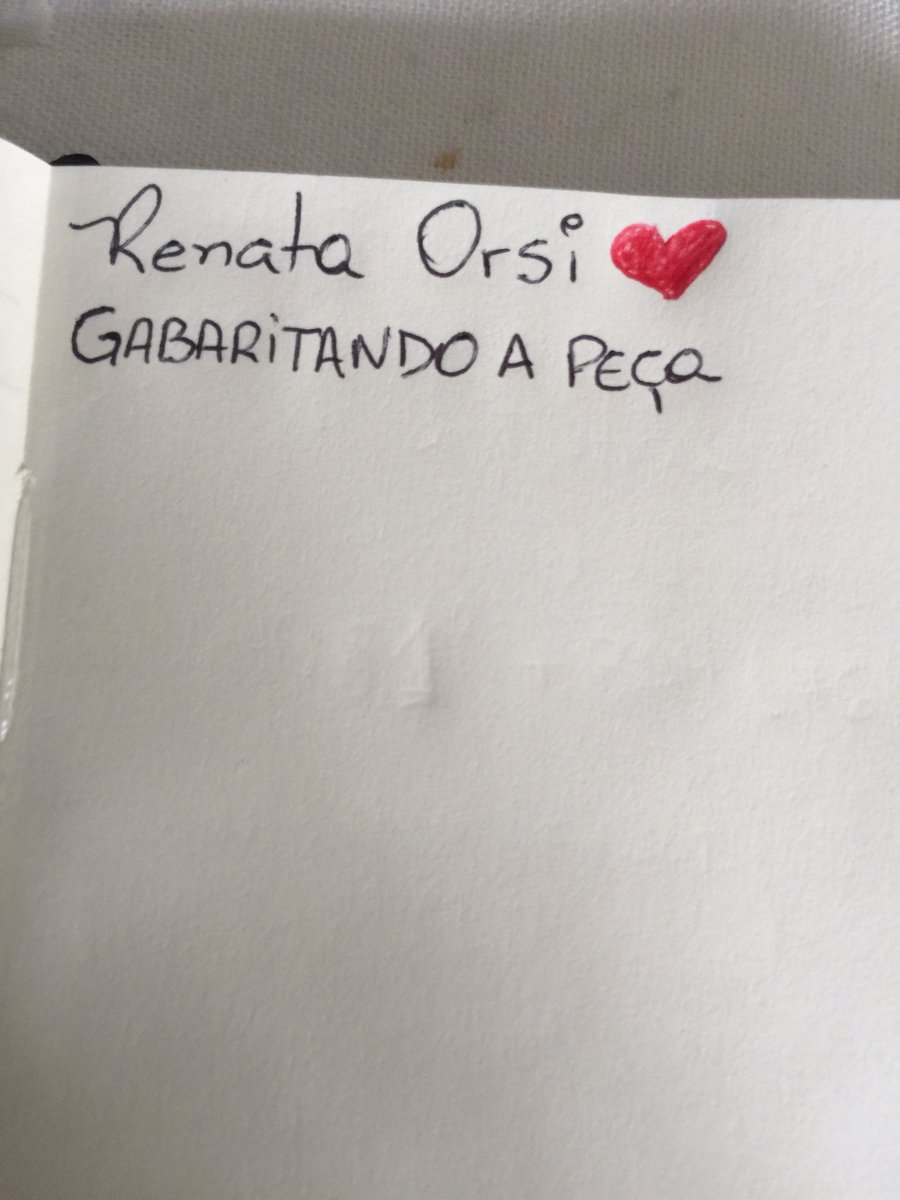 Renata Orsi
GABARiTANDO A PEÇa